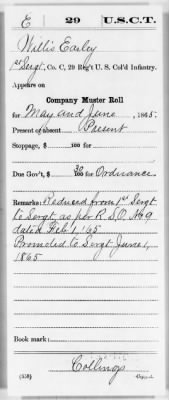 E 29 U.S.C.T.
Willis Earley
1st Sergt., Co. C, 29 Reg't U.S. Col'd Infantry.
Appears on
Company Muster Roll
for May and June, 1865.
Present or absent Present
Stoppage, $ 100 for
Due Gov't, $ 30/100 for Ordnance
Remarks: Reduced from 1st Sergt
to Sergt, as per R.S.O. No 9
dated Feb 1, '65
Promoted to Sergt June 1,
1865
Book mark:
Collings
(358) Copyist.